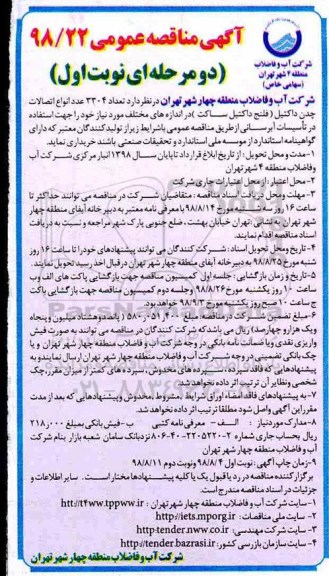 شرکت آب و فاضلاب
منطقه ۴ شهر تهران
(سهامی خاص)
آگهی مناقصه عمومی ۹۸/۲۲
(دو مرحله‌ای نوبت اول)
شرکت آب و فاضلاب منطقه چهار شهر تهران در نظر دارد تعداد ۳۳۰۴ عدد انواع اتصالات
چدن داکتیل (فلنج داکتیل ساکت) در اندازه های مختلف مورد نیاز خود را جهت استفاده
در تأسیسات آبرسانی از طریق مناقصه عمومی با شرایط زیر از تولیدکنندگان معتبر که دارای
گواهینامه استاندارد از موسسه ملی استاندارد و تحقیقات صنعتی باشند خریداری نماید.
۱-مدت و محل تحویل: از تاریخ ابلاغ قرارداد تا پایان سال ۱۳۹۸ انبار مرکزی شرکت آب
وفاضلاب منطقه ۴ شهر تهران
۲- محل اعتبار: از محل اعتبارات جاری شرکت
۳- مهلت و محل دریافت اسناد مناقصه: متقاضیان شرکت در مناقصه می توانند حداکثر تا
ساعت ۱۶ روز سه شنبه مورخ ۹۸/۸/۱۴ با معرفی نامه معتبر به دبیرخانه آبفای منطقه چهار
شهر تهران به نشانی: تهران خیابان بهشت، ضلع جنوبی پارک شهر مراجعه و نسبت به دریافت
اسناد مناقصه اقدام نمایند.
۴- تاریخ و محل تحویل اسناد: شرکت کنندگان می توانند پیشنهادهای خود را تا ساعت ۱۶ روز
شنبه مورخ ۹۸/۸/۲۵ به دبیرخانه آبفای منطقه چهار شهر تهران در قبال اخذ رسید تحویل نمایند.
۵- تاریخ و زمان بازگشایی: جلسه اول کمیسیون مناقصه جهت بازگشایی پاکت های الف وب
ساعت ۱۰ روز یکشنبه مورخ ۹۸/۸/۲۶ وجلسه دوم کمیسیون مناقصه جهت بازگشایی پاکت
ج ساعت ۱۰ صبح روز یکشنبه مورخ ۹۸/۹/۳ خواهد بود.
۶-مبلغ تضمین شرکت در مناقصه مبلغ ۵۸۰٫۰۵۱٫۰۴۰ (پانصدوهشتاد میلیون و پنجاه
ویک هزارو چهارصد) ریال می باشد که شرکت کنندگان در مناقصه می توانند به صورت فیش
واریزی نقدی ویا ضمانت نامه بانکی در وجه شرکت آب و فاضلاب منطقه چهار شهر تهران و یا
چک بانکی تضمینی در وجه شرکت آب و فاضلاب منطقه چهار شهر تهران ارسال نمایند و به
پیشنهادهایی که فاقد سپرده، سپرده های مخدوش، سپرده های کمتر از میزان مقرر، چک
شخصی و نظایر آن ترتیب اثر داده نخواهد شد.
۷- به پیشنهادهای فاقد امضاء اوراق شرایط، مشروط، مخدوش و پیشنهادهایی که بعد از مدت
مقرر این آگهی واصل شود مطلقا ترتیب اثر داده نخواهد شد.
۸-مدارک مورد نیاز : الف - معرفی نامه کتبی ب -فیش بانکی بمبلغ ۲۱۸٫۰۰۰
ریال بحساب جاری شماره ۲-۲۲۰۵۲۲۰-۴۰-۸۰۶ نزد بانک سامان شعبه بازار بنام شرکت
آب و فاضلاب منطقه چهار شهر تهران
۹- زمان چاپ آگهی: نوبت اول ۹۸/۸/۴ و نوبت دوم ۹۸/۸/۱۱
برگزار کننده مناقصه در رد یا قبول یک یا کلیه پیشنهادها مختار است. سایر اطلاعات و
جزئیات در اسناد مناقصه مندرج است.
۱- سایت شرکت آب و فاضلاب منطقه چهار شهر تهران : htt://t4ww.tppww.ir
۲- سایت ملی مناقصات: http://iets.mporg.ir
۳- سایت شرکت مهندسی: http:tender.nww.co.ir
۴- سایت سازمان بازرسی کشور: http://tender.bazrasi.ir
شرکت آب و فاضلاب منطقه چهار شهر تهران